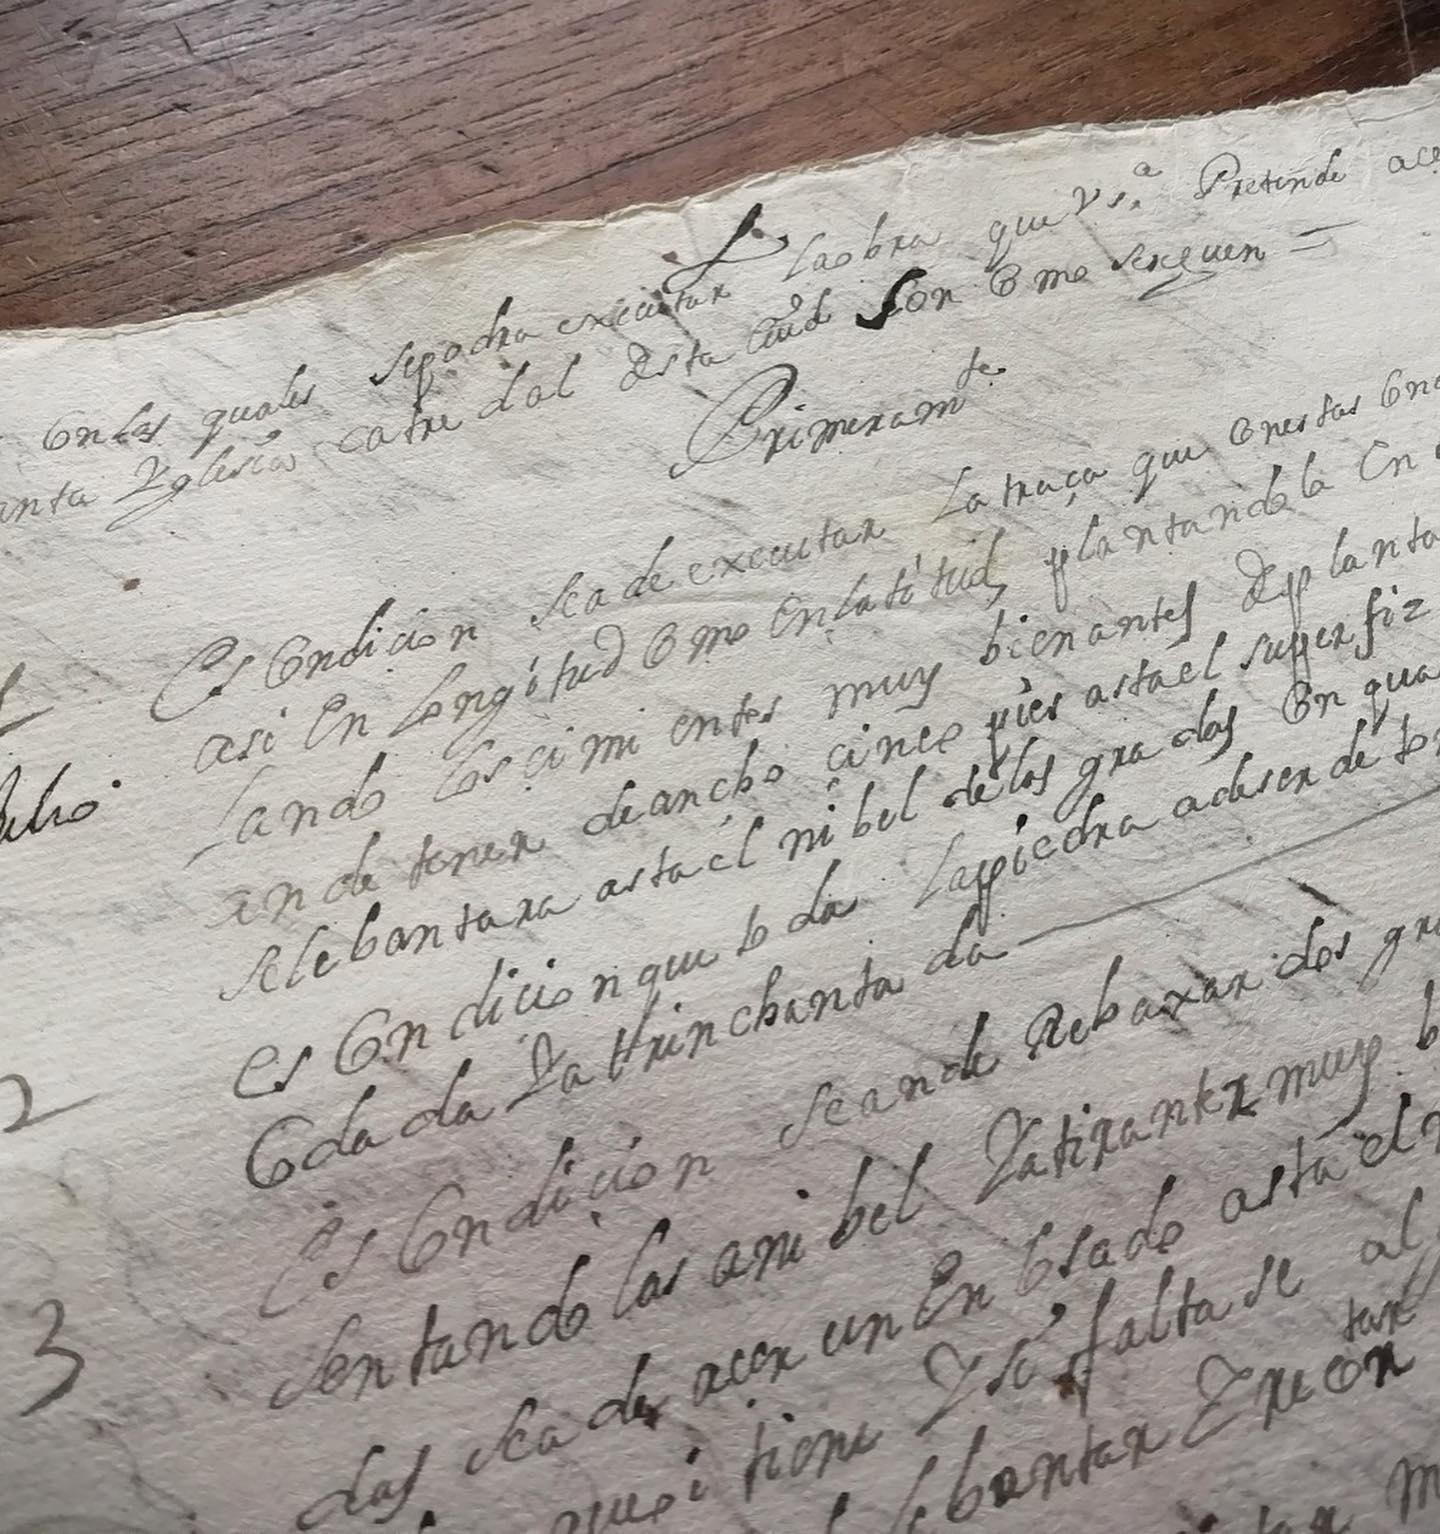 Conlas quales sepodra executar Laobra que V.S.ª Pretende ace
anta Yglesia catredal desta Ciud son Como sesiguen =
Primeramte
Es Condicion sea de executar La traça que Conestas Con
asi En Longitud Como Enlatitud, plantandola En
lando Los cimientos muy bien antes de planta
an de tener de ancho cinco pies asta el superfiz
se lebantara asta el nibel de las gradas En qua
2 es Condicion que toda Lapiedra a deser de to
Codada Yatrinchantada
3 Es Condicion seande Rebaxar dos gra
sentando las ani bel Yatirantez muy b
das sea de acer un Enlosado asta el
que oi tiene Ysi faltase al
lebantar